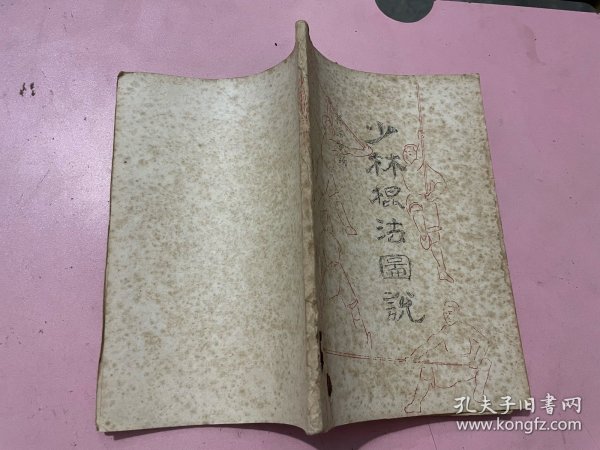 少林棍法圖說
孔夫子旧书网
www.kongfz.com